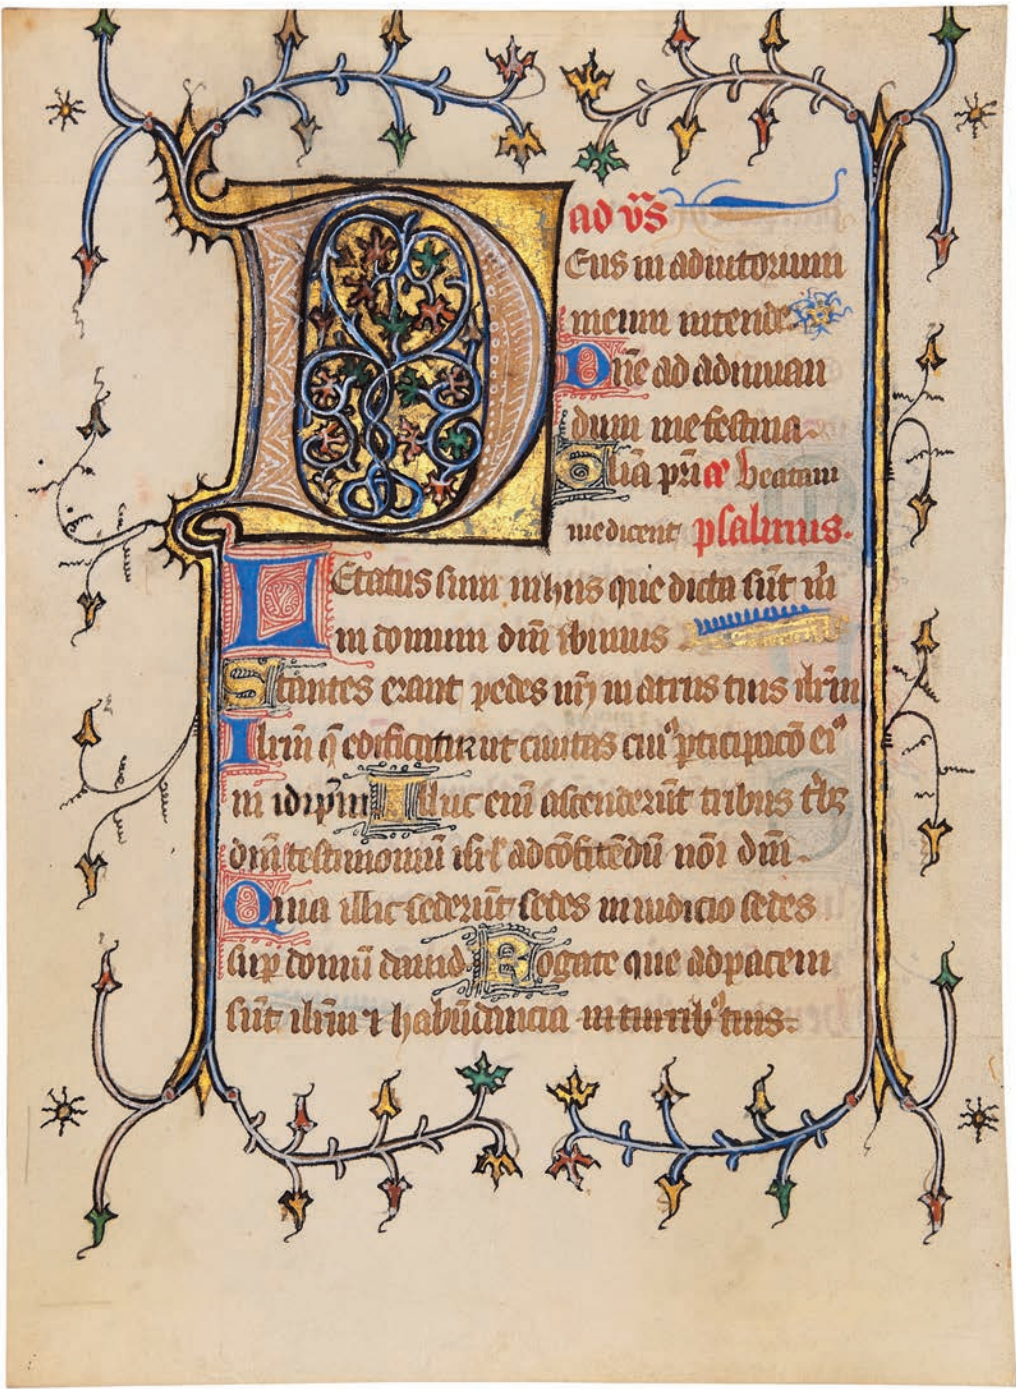 ad v̄s
DEus in adiutorium
meum intende
Dn̄e ad adiuuan
dum me festina.
Gl̄ia pr̄i ã beatam
me dicent psalmus.
LEtatus sum in hiis que dicta sūt m̄
in domum dn̄i ibimus
Stantes erant pedes nr̄i in atriis tuis ihr̄lm
Ihr̄lm q̄ edificatur ut ciuitas cuiꝰ ꝑticipacō eiꝰ
in idip̄m Illuc eni᷑ ascenderūt tribus t'bꝫ
dn̄i testimoniū isrl̄ ad cōfitēdū nōi dn̄i.
Quia illic sederūt sedes in iudicio sedes
suꝑ domū dauid. Rogate que ad pacem
sūt ihr̄lm ⁊ habūdancia in turribꝰ tuis.